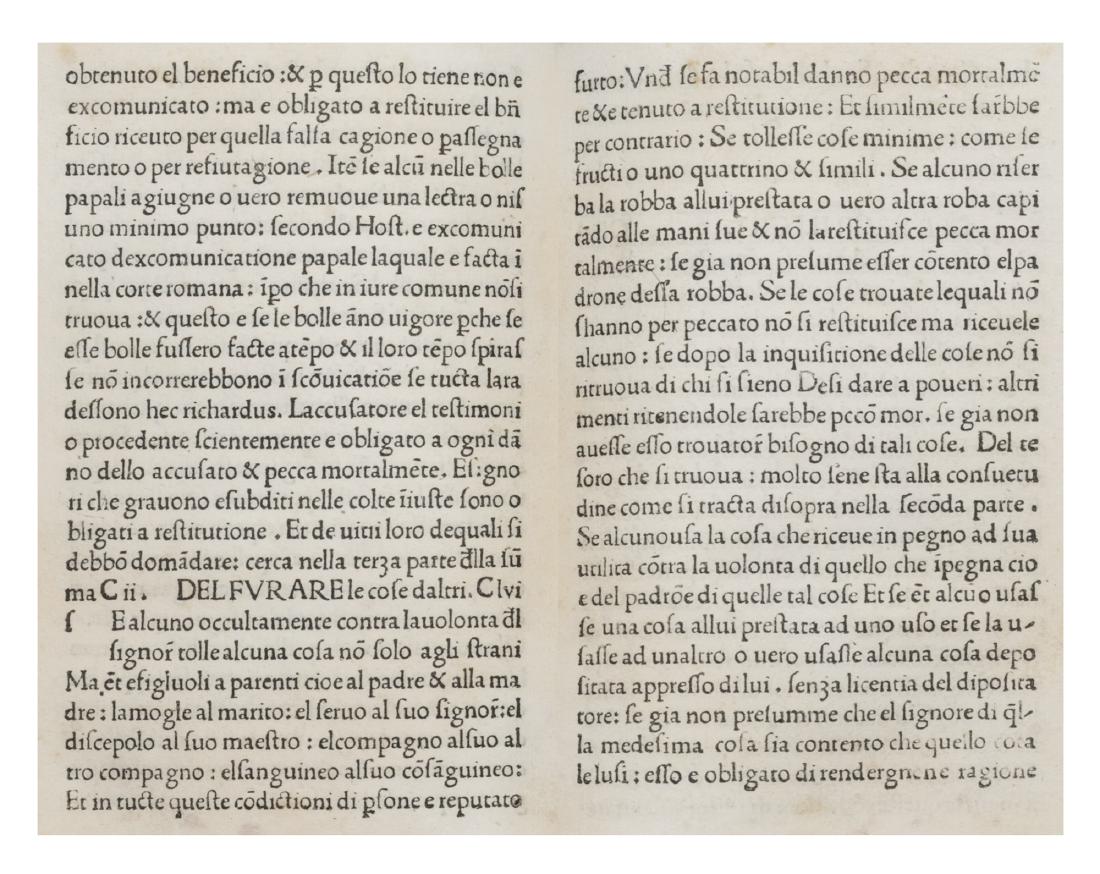 obtenuto el beneficio :& ꝑ queſto lo tiene non e
excomunicato : ma e obligato a reſtituire el bn̄
ficio riceuto per quella falſa cagione o paſſegna
mento o per refiutagione . Itē ſe alcū nelle bolle
papali agiugne o uero remuoue una lectra o niſ
uno minimo punto: ſecondo Hoſt. e excomuni
cato dexcomunicatione papale laquale e facta ī
nella corte romana : īpo che in iure comune nōſi
truoua :& queſto e ſe le bolle āno uigore ꝑche ſe
eſſe bolle fuſſero facte atēpo & il loro tēpo ſpiraſ
ſe nō incorrerebbono ī ſcōuicatiōe ſe tucta lara
deſſono hec richardus. Laccuſatore el teſtimoni
o procedente ſcientemente e obligato a ogni dā
no dello accuſato & peccca mortalmēte. Eſigno
ri che grauono eſubditi nelle colte īiuſte ſono o
bligati a reſtitutione . Et de uitii loro dequali ſi
debbō domādare: cerca nella terza parte đlla ſū
ma C ii . DEL FVRARE le coſe daltri. C lvi
ſ E alcuno occultamente contra lauolonta đl
ſignor̄ tolle alcuna coſa nō ſolo agli ſtrani
Ma ēt efigluoli a parenti cioe al padre & alla ma
dre : lamogle al marito: el ſeruo al ſuo ſignor̄:el
diſcepolo al ſuo maeſtro : elcompagno alſuo al
tro compagno : elſanguineo alſuo cōſāguineo:
Et in tucte queſte cōdictioni di ꝑſone e reputato
furto: Vnđ ſe fa notabil danno pecca mortalmē
te &e tenuto a reſtitutione : Et ſimilmēte ſar̄bbe
per contrario : Se tolleſſe coſe minime : come ſe
fructi o uno quattrino & ſimili . Se alcuno riſer
ba la robba allui preſtata o uero altra roba capi
tādo alle mani ſue & nō la reſtituiſce pecca mor
talmente : ſe gia non preſume eſſer cōtento elpa
drone deſſa robba. Se le coſe trouate lequali nō
ſhanno per peccato nō ſi reſtituiſce ma riceuele
alcuno : ſe dopo la inquiſitione delle coſe nō ſi
ritruoua di chi ſi ſieno Deſi dare a poueri : altri
menti ritenendole ſarebbe pccō mor. ſe gia non
aueſſe eſſo trouator̄ biſogno di tali coſe. Del te
ſoro che ſi truoua : molto ſene ſta alla conſuetu
dine come ſi tracta diſopra nella ſecōda parte .
Se alcuno uſa la coſa che riceue in pegno ad ſua
utilita cōtra la uolonta di quello che īpegna cio
e del padrōe di quelle tal coſe Et ſe ēt alcūo uſaſ
ſe una coſa allui preſtata ad uno uſo et ſe la u-
ſaſſe ad unaltro o uero uſaſſe alcuna coſa depo
ſitata appreſſo di lui . ſenza licentia del dipoſita
tore: ſe gia non preſumme che el ſignore di q̄l-
la medeſima coſa ſia contento che quello coſa
le luſi : eſſo e obligato di render ragione